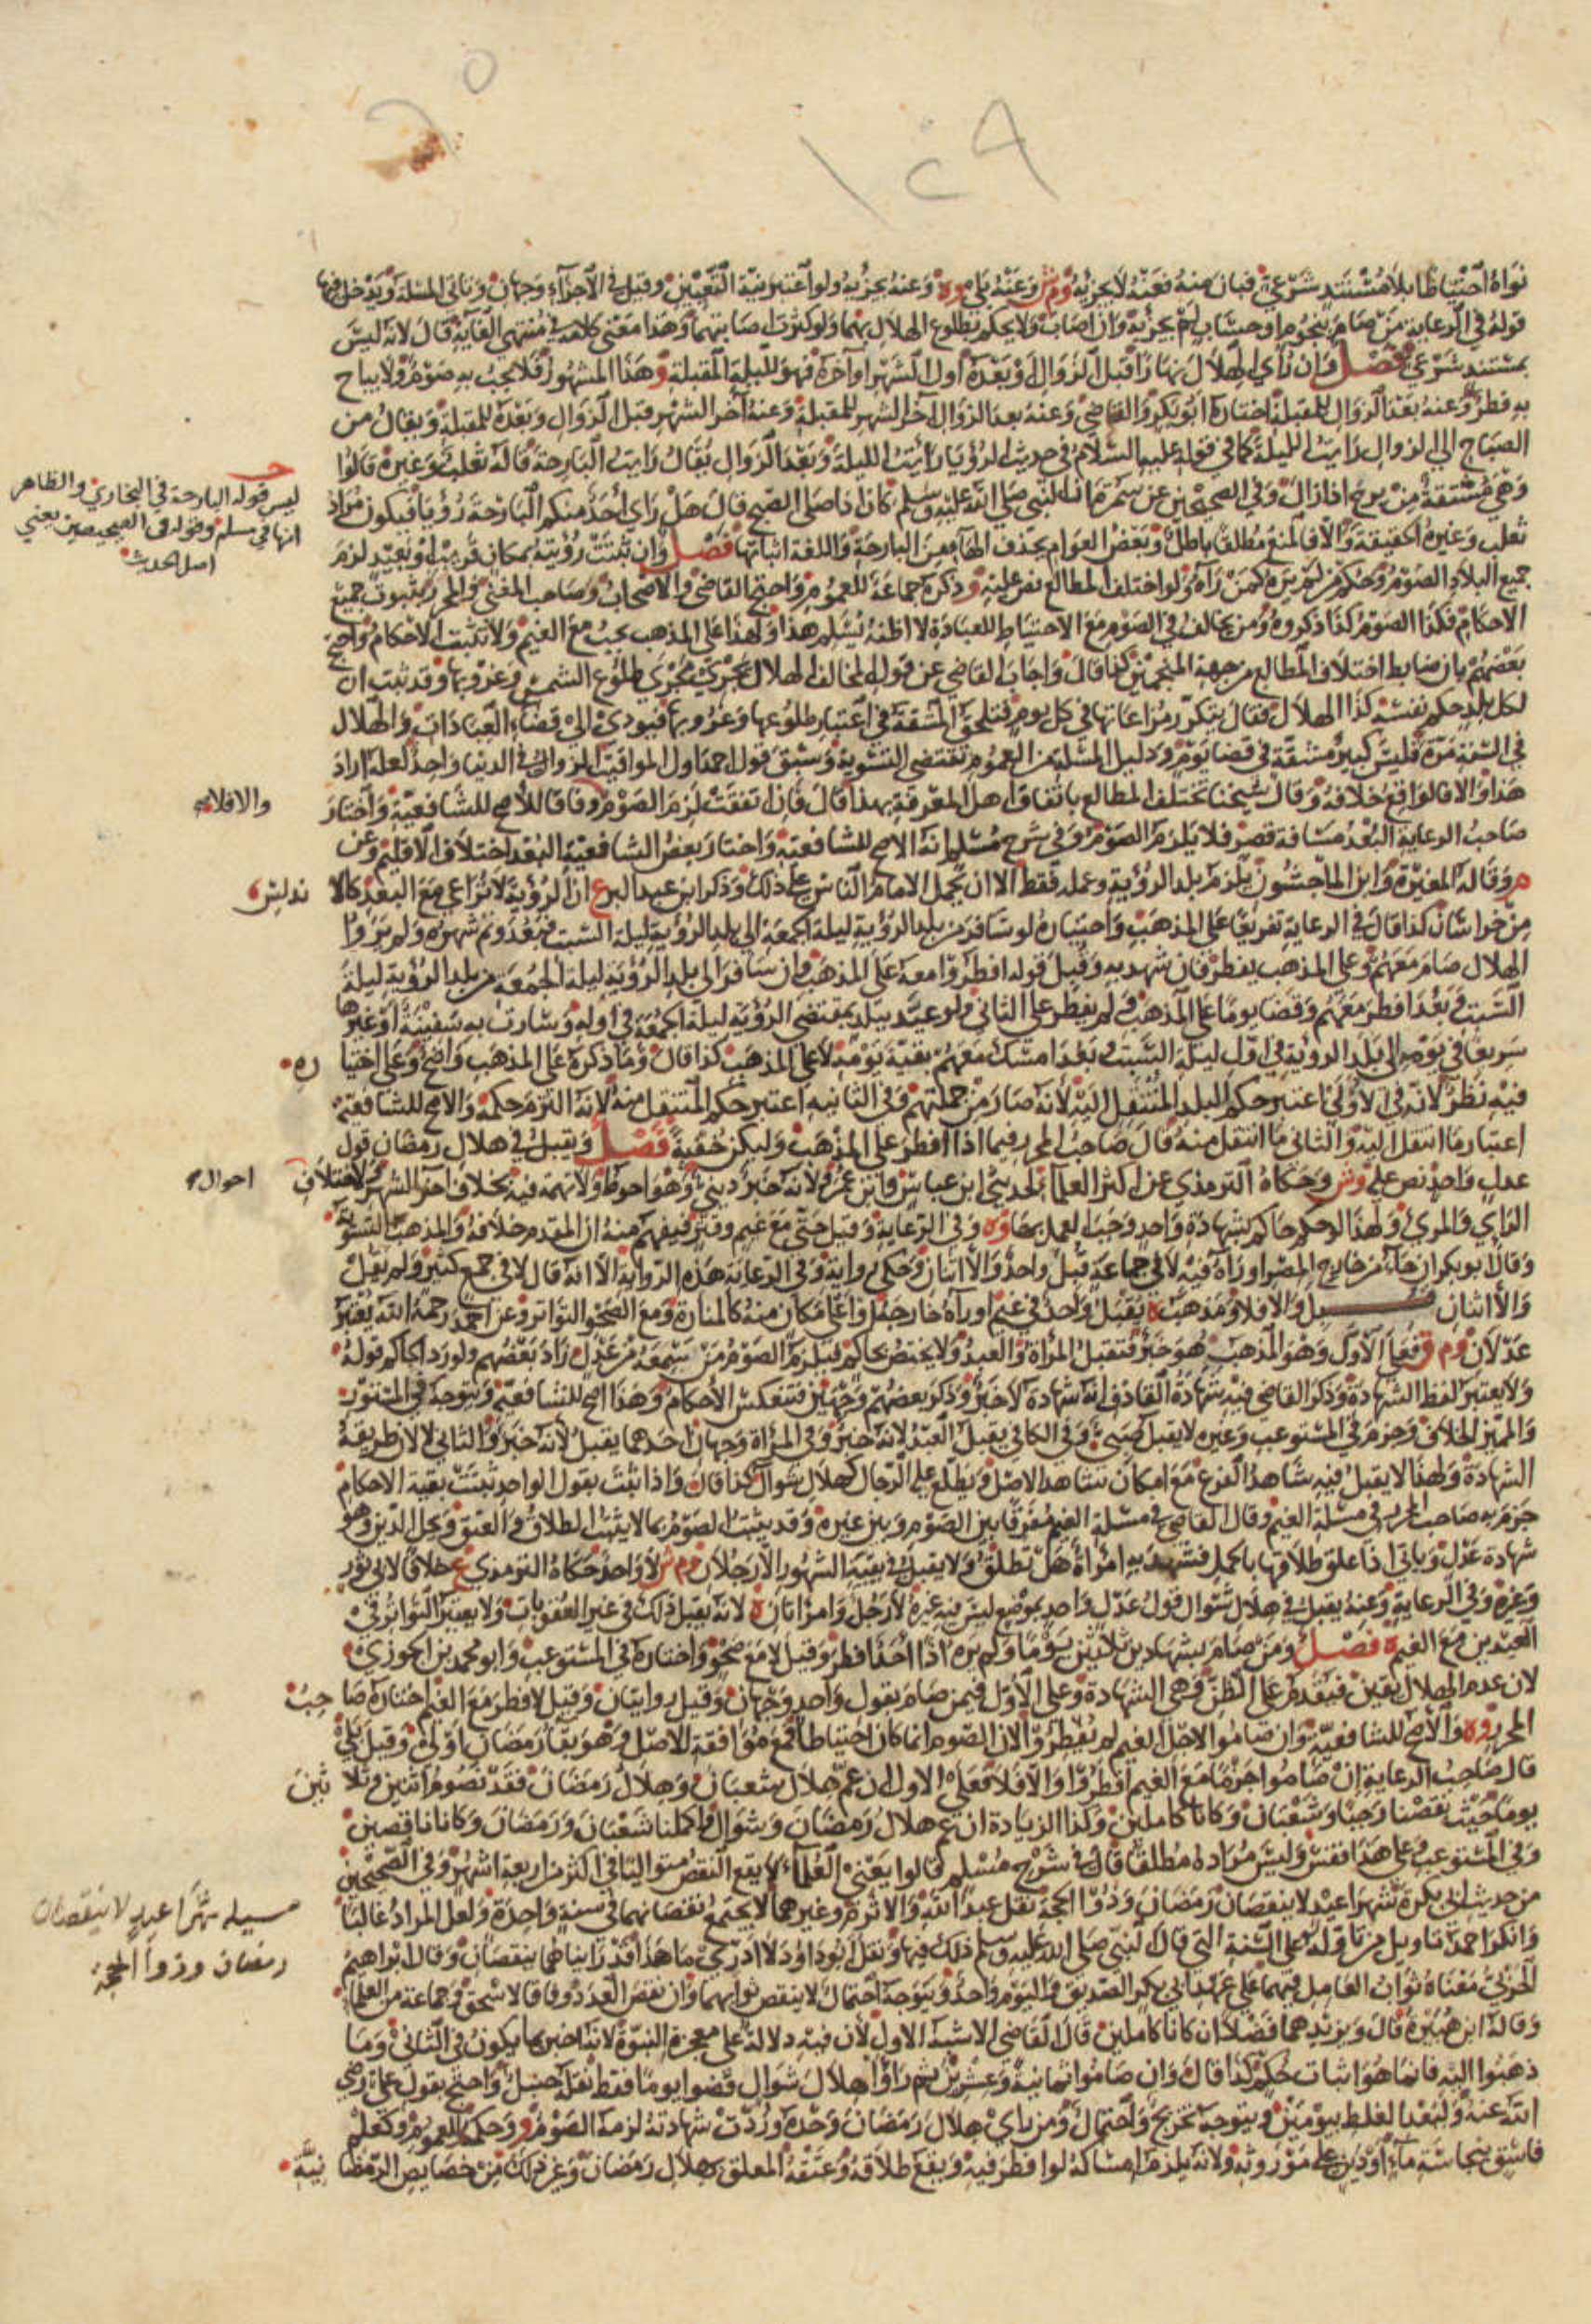 ١٤٩
نواه احتياطا بلا مستند شرعي فبان منه فعنه لا يجزيه وم ش وعنه بلى وه وعنه يجزيه ولو اعتبر نية التعيين وقيل في الاجزاء وجهان وتاتي المسلة ويدخل فيها
قوله في الرعاية من صام بنجوم او حساب لم يجزيه وان اصاب ولا يحكم بطلوع الهلال بهما ولو كثرت اصابتهما وهذا معنى كلامه في منتهى الغاية قال لانه ليس
بمستند شرعي فصل وان راي الهلال نهارا قبل الزوال او بعده اول الشهر او آخره فهو لليلة المقبلة و هذا المشهور فلا يجب به صوم ولا يباح
به فطر وعنه بعد الزوال للمقبلة اختاره ابو بكر والقاضي وعنه بعد الزوال آخر الشهر للمقبلة وعنه آخر الشهر قبل الزوال وبعده للمقبلة ويقال من
الصباح الى الزوال رايت الليلة كما في قوله عليه السلام في حديث الرؤيا رايت الليلة وبعد الزوال يقال رايت البارحة قاله ثعلب وغيره قالوا
وهي مشتقة من برح اذا زال وفي الصحيحين عن سمرة ان النبي صلى الله عليه وسلم كان اذا صلى الصبح قال هل راي احد منكم البارحة رؤيا فيكون مراد
ثعلب وغيره الحقيقة والا فالمنع مطلقا باطل وبعض العوام يحذف الهاء من البارحة واللغة اثباتها فصل وان ثبتت رؤيته بمكان قريب او بعيد لزم
جميع البلاد الصوم وحكم من لم يره كمن رآه ولو اختلف المطالع نص عليه و ذكره جماعة للعموم واحتج القاضي والاصحاب وصاحب المغني والمحرر بثبوت جميع
الاحكام فكذا الصوم كذا ذكروه ومن يخالف في الصوم مع الاحتياط للعبادة لا اظنه يسلم هذا ولهذا على المذهب يجب مع الغيم ولا تثبت الاحكام واحتج
بعضهم بان ضابط اختلاف المطالع من جهة المنجمين كذا قال واجاب القاضي عن قول المخالف الهلال يجري مجرى طلوع الشمس وغروبها وقد ثبت ان
لكل بلد حكم نفسه كذا الهلال فقال يتكرر مراعاتها في كل يوم فتلحق المشقة في اعتبار طلوعها وغروبها فيودي الى قضاء العبادات والهلال
في السنة مرة فليس كبير مشقة في قضا يوم ودليل المسلة من العموم تقتضي التسوية وسبق قول احمد اول المواقيت الزوال في الدنيا واحد لعله اراد
هذا والا فالواقع خلافه وقال شيخنا تختلف المطالع باتفاق اهل المعرفة بهذا قال فان اتفقت لزم الصوم وفاقا للاصح للشافعية والا فلا واختار
صاحب الرعاية البعد مسافة قصر فلا يلزم الصوم وفي شرح مسلم انه الاصح للشافعية واختار بعض الشافعية البعد اختلاف الاقليم وعن
م وقاله المغيرة وابن الماجشون يلزم بلد الرؤية وعمله فقط الا ان يحمل الامام الناس على ذلك وذكر ابن عبد البر ع ان الرؤية لا تراعى مع البعد كالاندلس
من خراسان كذا قال في الرعاية تفريعا على المذهب واختياره لو سافر من بلد الرؤية ليلة الجمعة الى بلد الرؤية ليلة السبت فبعد وتم شهره ولم يروا
الهلال صام معهم وعلى المذهب يفطر فان شهد به وقبل قوله افطروا معه على المذهب وان سافر الى بلد الرؤية ليلة الجمعة من بلد الرؤية ليلة
السبت وبعد افطر معهم وقضا يوما على المذهب ولم يفطر على الثاني ولو عيد ببلد بمقتضى الرؤية ليلة الجمعة في اوله وسارت به سفينة او غيرها
سريعا في يومه الى بلد الرؤية في اول ليلة السبت بعد امسك معهم بقية يومه لا على المذهب كذا قال وما ذكره على المذهب واضح وعلى اختياره
فيه نظر لانه في الاولى اعتبر حكم البلد المنتقل اليه لانه صار من جملتهم وفي الثانية اعتبر حكم المنتقل منه لانه التزم حكمه والاصح للشافعية
اعتبار ما انتقل اليه والثاني ما انتقل منه قال صاحب المحرر فيما اذا افطر على المذهب وليكن خفية فصل ويقبل في هلال رمضان قول
عدل واحد نص عليه وش وحكاه الترمذي عن اكثر العلماء لحديثي ابن عباس وابن عمر ولانه خبر ديني وهو احوط ولا تهمة فيه بخلاف آخر الشهر ولاختلاف احوال
الراي والمرئ ولهذا لو حكم حاكم بشهادة واحد وجب العمل بها وه وفي الرعاية وقيل حتى مع غيم وقتر فيفهم منه ان المقدم خلافه والمذهب التسوية
وقال ابو بكر ان جاء من خارج المصر او رآه فيه لا في جماعة قبل واحد والا اثنان وحكى رواية وفي الرعاية هذه الرواية الا انه قال لا في جمع كثير ولم يقل
والا اثنان والا فلا ومذهب ه يقبل واحد في غيم او رآه خارجه او اعلى مكان منه كالمنارة ومع الصحو التواتر وعن احمد رحمه الله يعتبر
عدلان وم ق فعلى الاول وهو المذهب هو خبر فتقبل المراة والعبد ولا يختص بحاكم فيلزم الصوم من سمعه من عدل زاد بعضهم ولو رد الحاكم قوله
ولا يعتبر لفظ الشهادة وذكر القاضي فيه شهادة القاذف انه شهادة لا خبر وذكر بعضهم وجهين فتنعكس الاحكام وهذا اصح للشافعية ويتوجه في المستور
والمميز الخلاف وجزم في المستوعب وغيره لا يقبل صبي وفي الكافي يقبل العبد لانه خبر وفي المراة وجهان احدهما يقبل لانه خبر والثاني لا لان طريقه
الشهادة ولهذا لا يقبل فيه شاهد الفرع مع امكان شاهد الاصل ويطلع عليه الرجال كهلال شوال كذا قال واذا ثبت بقول الواحد ثبتت بقية الاحكام
جزم به صاحب المحرر في مسلة الغيم وقال القاضي في مسلة الغيم مفرقا بين الصوم وبين غيره وقد يثبت الصوم بما لا يثبت الطلاق والعتق وحل الدين وهو
شهادة عدل وياتي اذا علق طلاقها بالحمل فشهد به امراة هل تطلق ولا يقبل في بقية الشهور الا رجلان وم ش لا واحد حكاه الترمذي ع خلافا لابي ثور
وغيره وفي الرعاية وعنه يقبل في هلال شوال قول عدل واحد بموضع ليس فيه غيره لا رجل وامراتان ه لانه يقبل ذلك في غير العقوبات ولا يعتبر التواتر في
العيدين مع الغيم ه فصل ومن صام بشهادين ثلاثين يوما ولم يره اذا احد افطر وقيل لا مع صحو واختاره في المستوعب وابو محمد بن الجوزي
لان عدم الهلال يقين فيقدم على الظن وهي الشهادة وعلى الاول فيمن صام بقول واحد وجهان وقيل روايتان وقيل لا فطر مع الغيم اختاره صاحب
المحرر وه والاصح للشافعية وان صاموا لاجل الغيم لم يفطروا لان الصوم انما كان احتياطا فمع موافقة الاصل وهو بقا رمضان اولى وقيل بلى
قال صاحب الرعاية ان صاموا جزما مع الغيم افطروا والا فلا فعلى الاول ان غم هلال شعبان وهلال رمضان فقد نصوم اثنين وثلاثين
يوما حيث نقصنا رجبا وشعبان وكانا كاملين وكذا الزيادة ان غم هلال رمضان وشوال واكملنا شعبان ورمضان وكانا ناقصين
وفي المستوعب وعلى هذا فقس وليس مراده مطلقا قال في شرح مسلم قالوا يعني العلماء لا يقع النقص متواليا في اكثر من اربعة اشهر وفي الصحيحين
من حديث ابي بكرة شهرا عيد لا ينقصان رمضان وذوا الحجة نقل عبد الله والاثرم وغيرهما لا يجتمع نقصانهما في سنة واحدة ولعل المراد غالبا
وانكر احمد تاويل من تاوله على السنة التي قال النبي صلى الله عليه وسلم ذلك فيها ونقل ابو داود لا ادري ما هذا قد رايناهما ينقصان وقال ابراهيم
الحربي معناه ثواب العامل فيهما على عهد ابي بكر الصديق واليوم واحد ويتوجه احتمال لا ينقص ثوابهما وان نقص العدد وفاقا لاسحق وجماعة من العلماء
وقاله ابن هبيرة قال ويزيدهما فضلا ان كانا كاملين قال القاضي الاشبه الاول لان فيه دلالة على معجزة النبوة لانه اخبر بما يكون في الثاني وما
ذهبوا اليه فانما هو اثبات حكم كذا قال وان صاموا ثمانية وعشرين ثم راوا هلال شوال قضوا يوما فقط نقله حنبل واحتج بقول علي رضي
الله عنه ولبعد الغلط بيومين ويتوجه تخريج واحتمال ومن راي هلال رمضان وحده وردت شهادته لزمه الصوم و وحكمه للعموم وكعلم
فاسق بنجاسة ماء او دين على موروثه ولانه يلزمه امساكه لو افطر فيه ويقع طلاقه وعتقه المعلق بهلال رمضان وغير ذلك من خصايص الرمضانية
ليس قوله البارحة في البخاري والظاهر
انها في مسلم وقوله في الصحيحين يعني
اصل الحديث
مسيله شهرا عيد لا ينقصان
رمضان وذوا الحجة